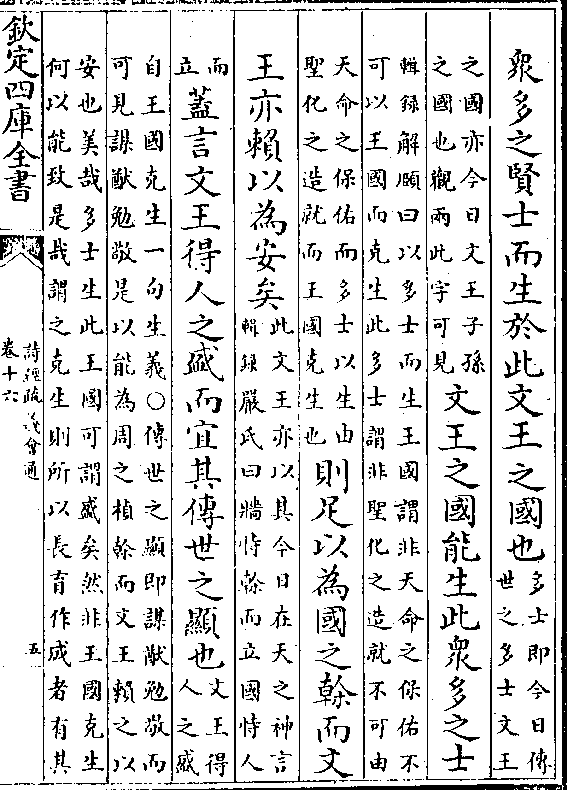 衆多之賢士而生於此文王之國也多士即今日傳世之多士文王
之國亦今日文王子孫之國也觀兩此字可見文王之國能生此衆多之士
輯録解頤曰以多士而生王國謂非天命之保佑不
可以王國而克生此多士謂非聖化之造就不可由
天命之保佑而多士以生由聖化之造就而王國克生也則足以為國之幹而文
王亦賴以為安矣此文王亦以其今日在天之神言輯録嚴氏曰牆恃幹而立國恃人
而立蓋言文王得人之盛而宜其傳世之顯也文王得人之盛
自王國克生一句生義○傳世之顯即謀猷勉敬而
可見謀猷勉敬是以能為周之楨幹而文王賴之以
安也美哉多士生此王國可謂盛矣然非王國克生
何以能致是哉謂之克生則所以長育作成者有其
欽定四庫全書
詩經疏義會通
卷十六
五